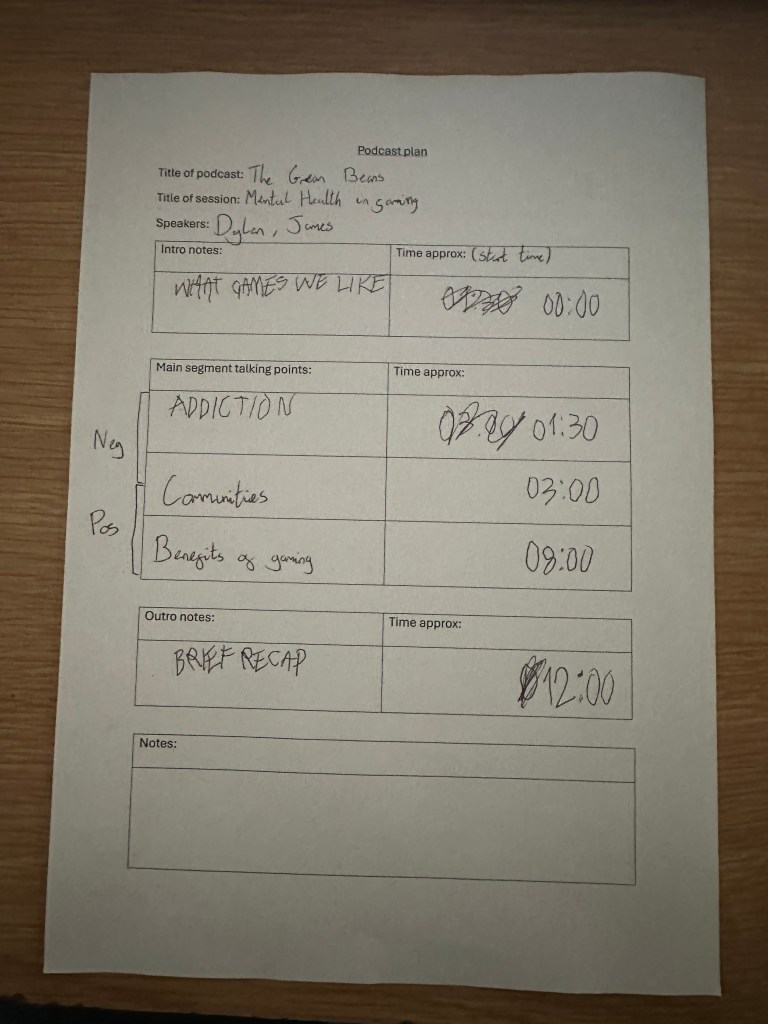 Podcast plan
Title of podcast: The Green Beans
Title of session: Mental Health in gaming
Speakers: Dylan, James
Intro notes: Time approx: (start time)
WHAT GAMES WE LIKE 00:00
Main segment talking points: Time approx:
ADDICTION 01:30
Neg
Communities 03:00
Pos
Benefits of gaming 08:00
Outro notes: Time approx:
BRIEF RECAP 12:00
Notes: